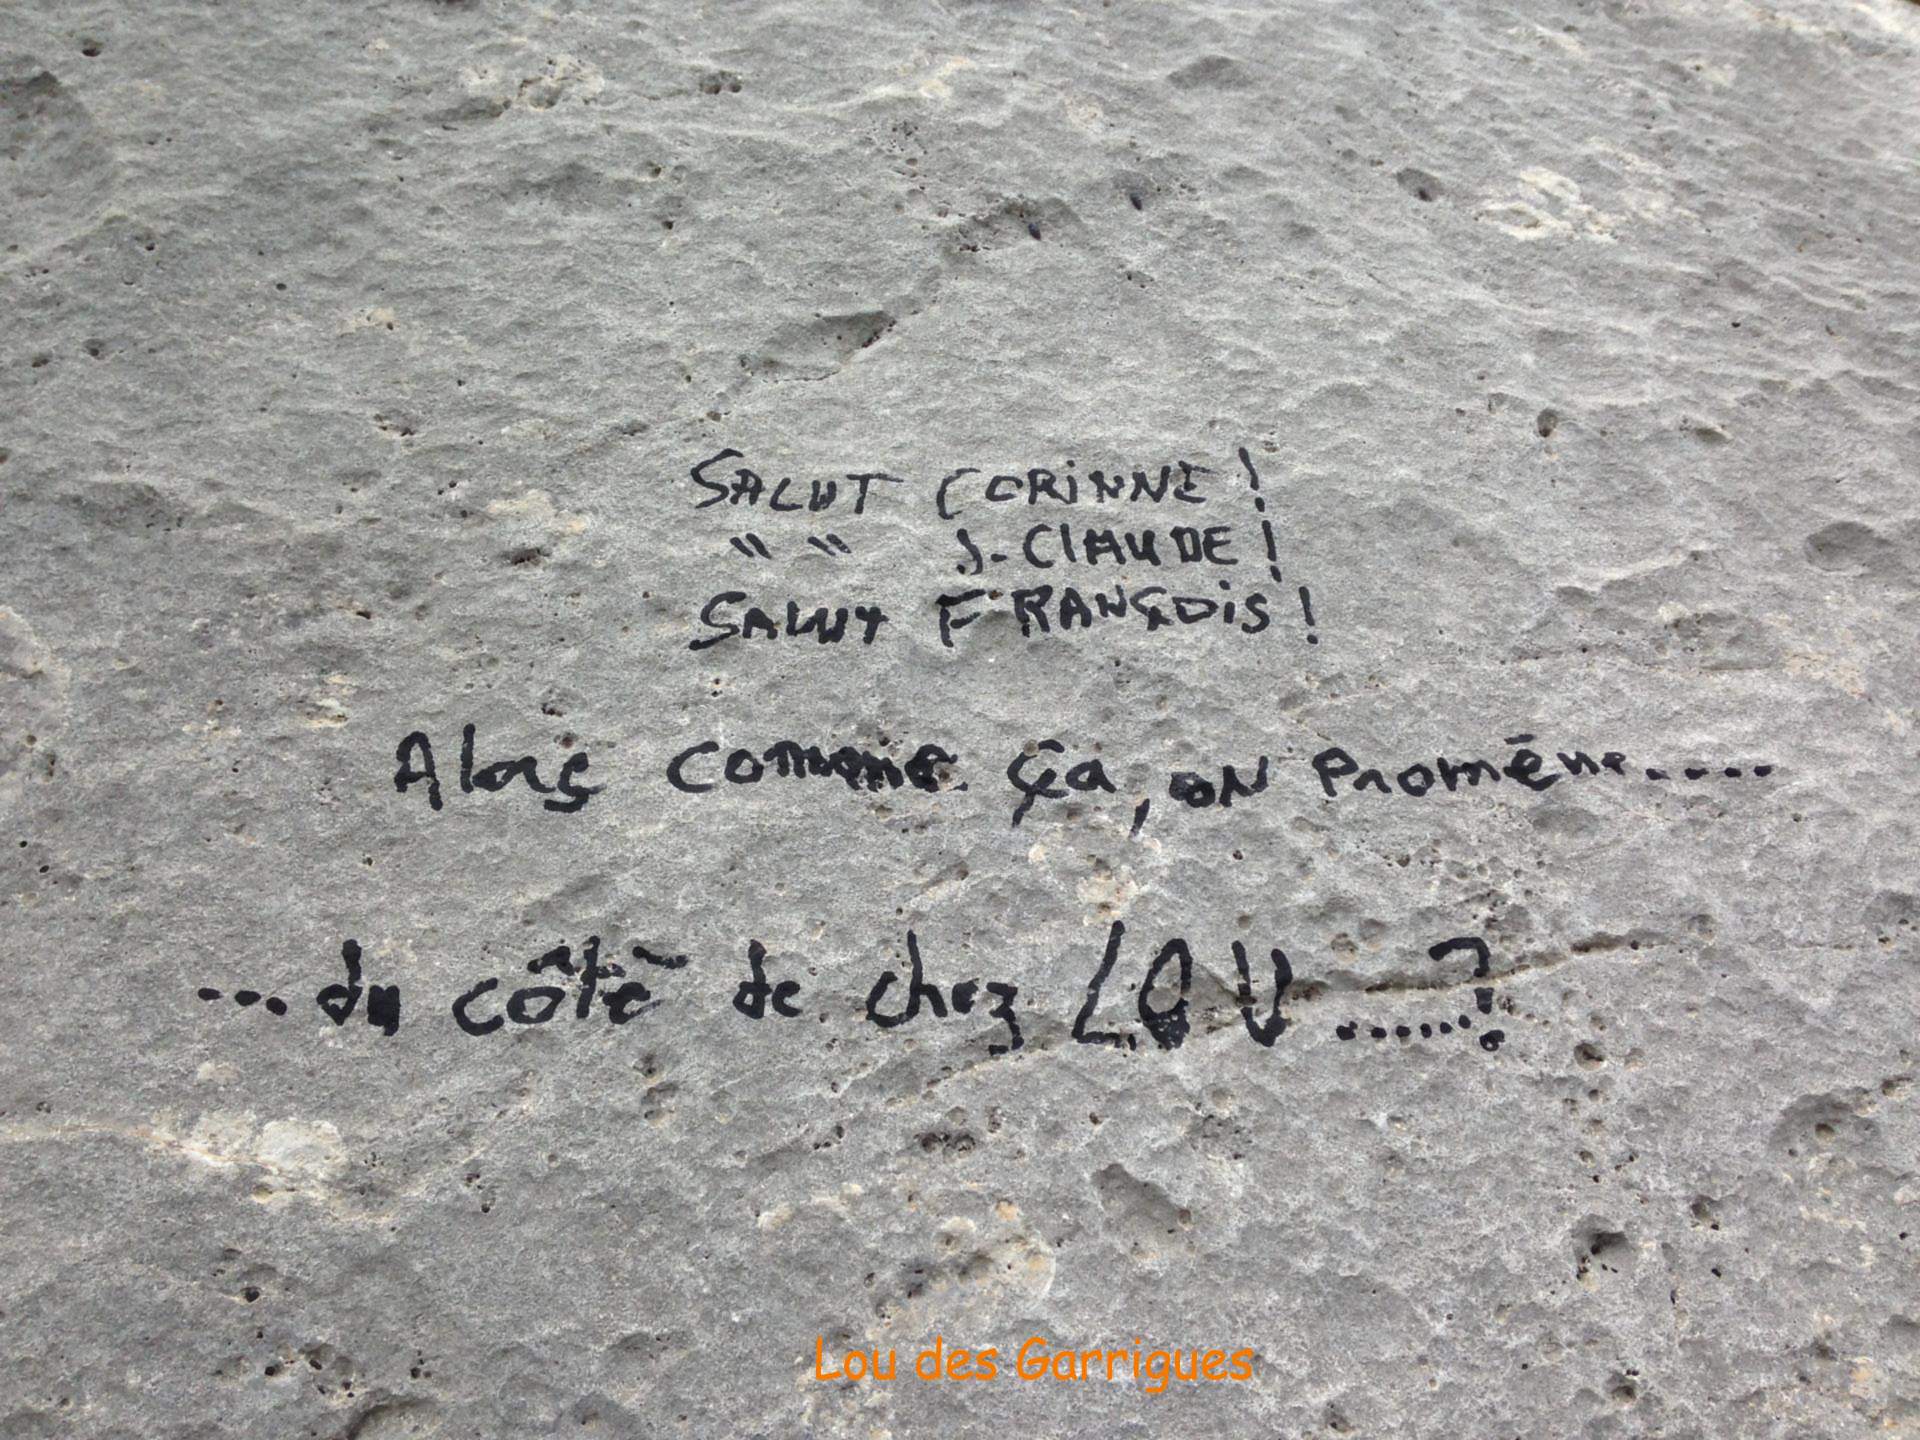 SALUT CORINNE !
" " J-ClAUDE !
SALUT FRANÇOIS !
Alors comme ça, on Promène.....
...du côté de chez LOU ......?
Lou des Garrigues